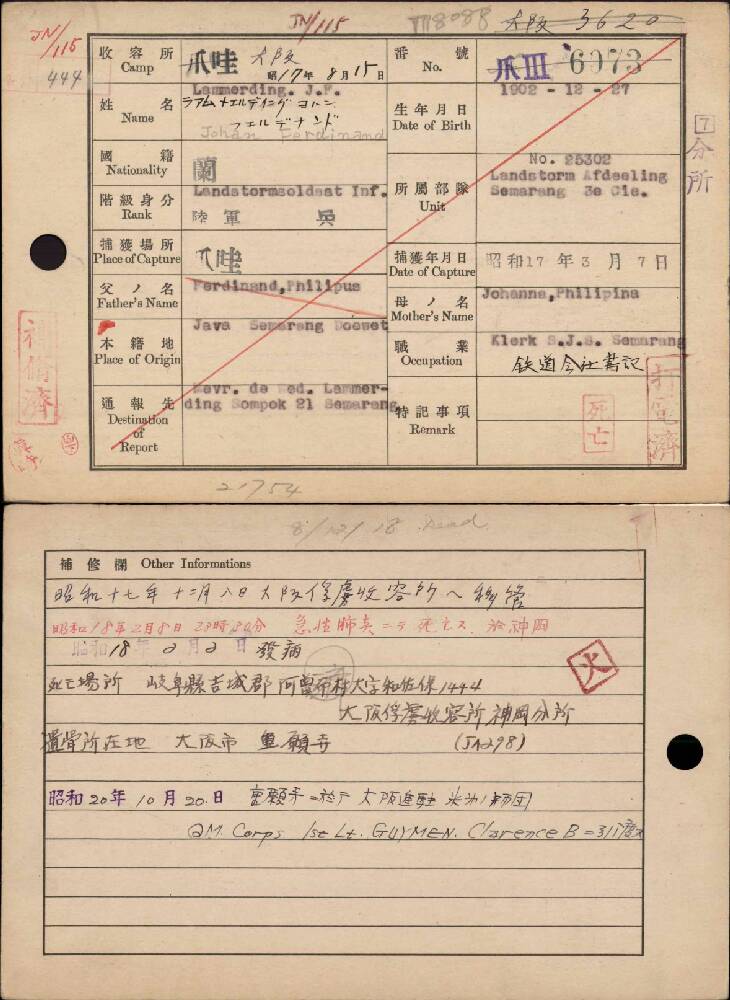 JN/115
JN/115
大阪 3620
444
收容所 Camp
爪哇 大阪
昭17年8月15日
番號 No.
爪III 6973
姓名 Name
Lammerding. J.F.
Johan Ferdinand
生年月日 Date of Birth
1902 - 12 - 27
7
分所
國籍 Nationality
蘭
所属部隊 Unit
No. 25302
Landstorm Afdeeling
Semarang 3e Cie.
階級身分 Rank
Landstormsoldaat Inf.
陸軍 兵
捕獲場所 Place of Capture
爪哇
捕獲年月日 Date of Capture
昭和17年3月7日
父ノ名 Father's Name
Ferdinand,Philipus
母ノ名 Mother's Name
Johanna,Philipina
本籍地 Place of Origin
Java Semarang Doowet
職業 Occupation
Klerk S.J.S. Semarang
鉄道会社書記
通報先 Destination of Report
Mevr. de Wed. Lammer-
ding Sompok 21 Semarang
特記事項 Remark
死亡
補備済
打電濟
21754
8/12/18 Dead.
補修欄 Other Informations
昭和十七年十二月八日大阪俘虜收容所へ移管
昭和18年2月8日 23時30分 急性肺炎ニテ死亡ス 於神岡
昭和18年2月2日 發病
火
死亡場所 岐阜縣吉城郡阿曽布村大字和佐保1444
大阪俘虜收容所神岡分所
遺骨所在地 大阪市
昭和20年10月20日
大阪進駐
Q.M. Corps 1st Lt. GUYMEN. Clarence B